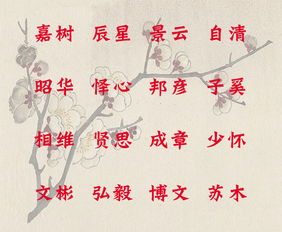 嘉树 辰星 景云 自清
昭华 怿心 邦彦 子奚
相维 贤思 成章 少怀
文彬 弘毅 博文 苏木